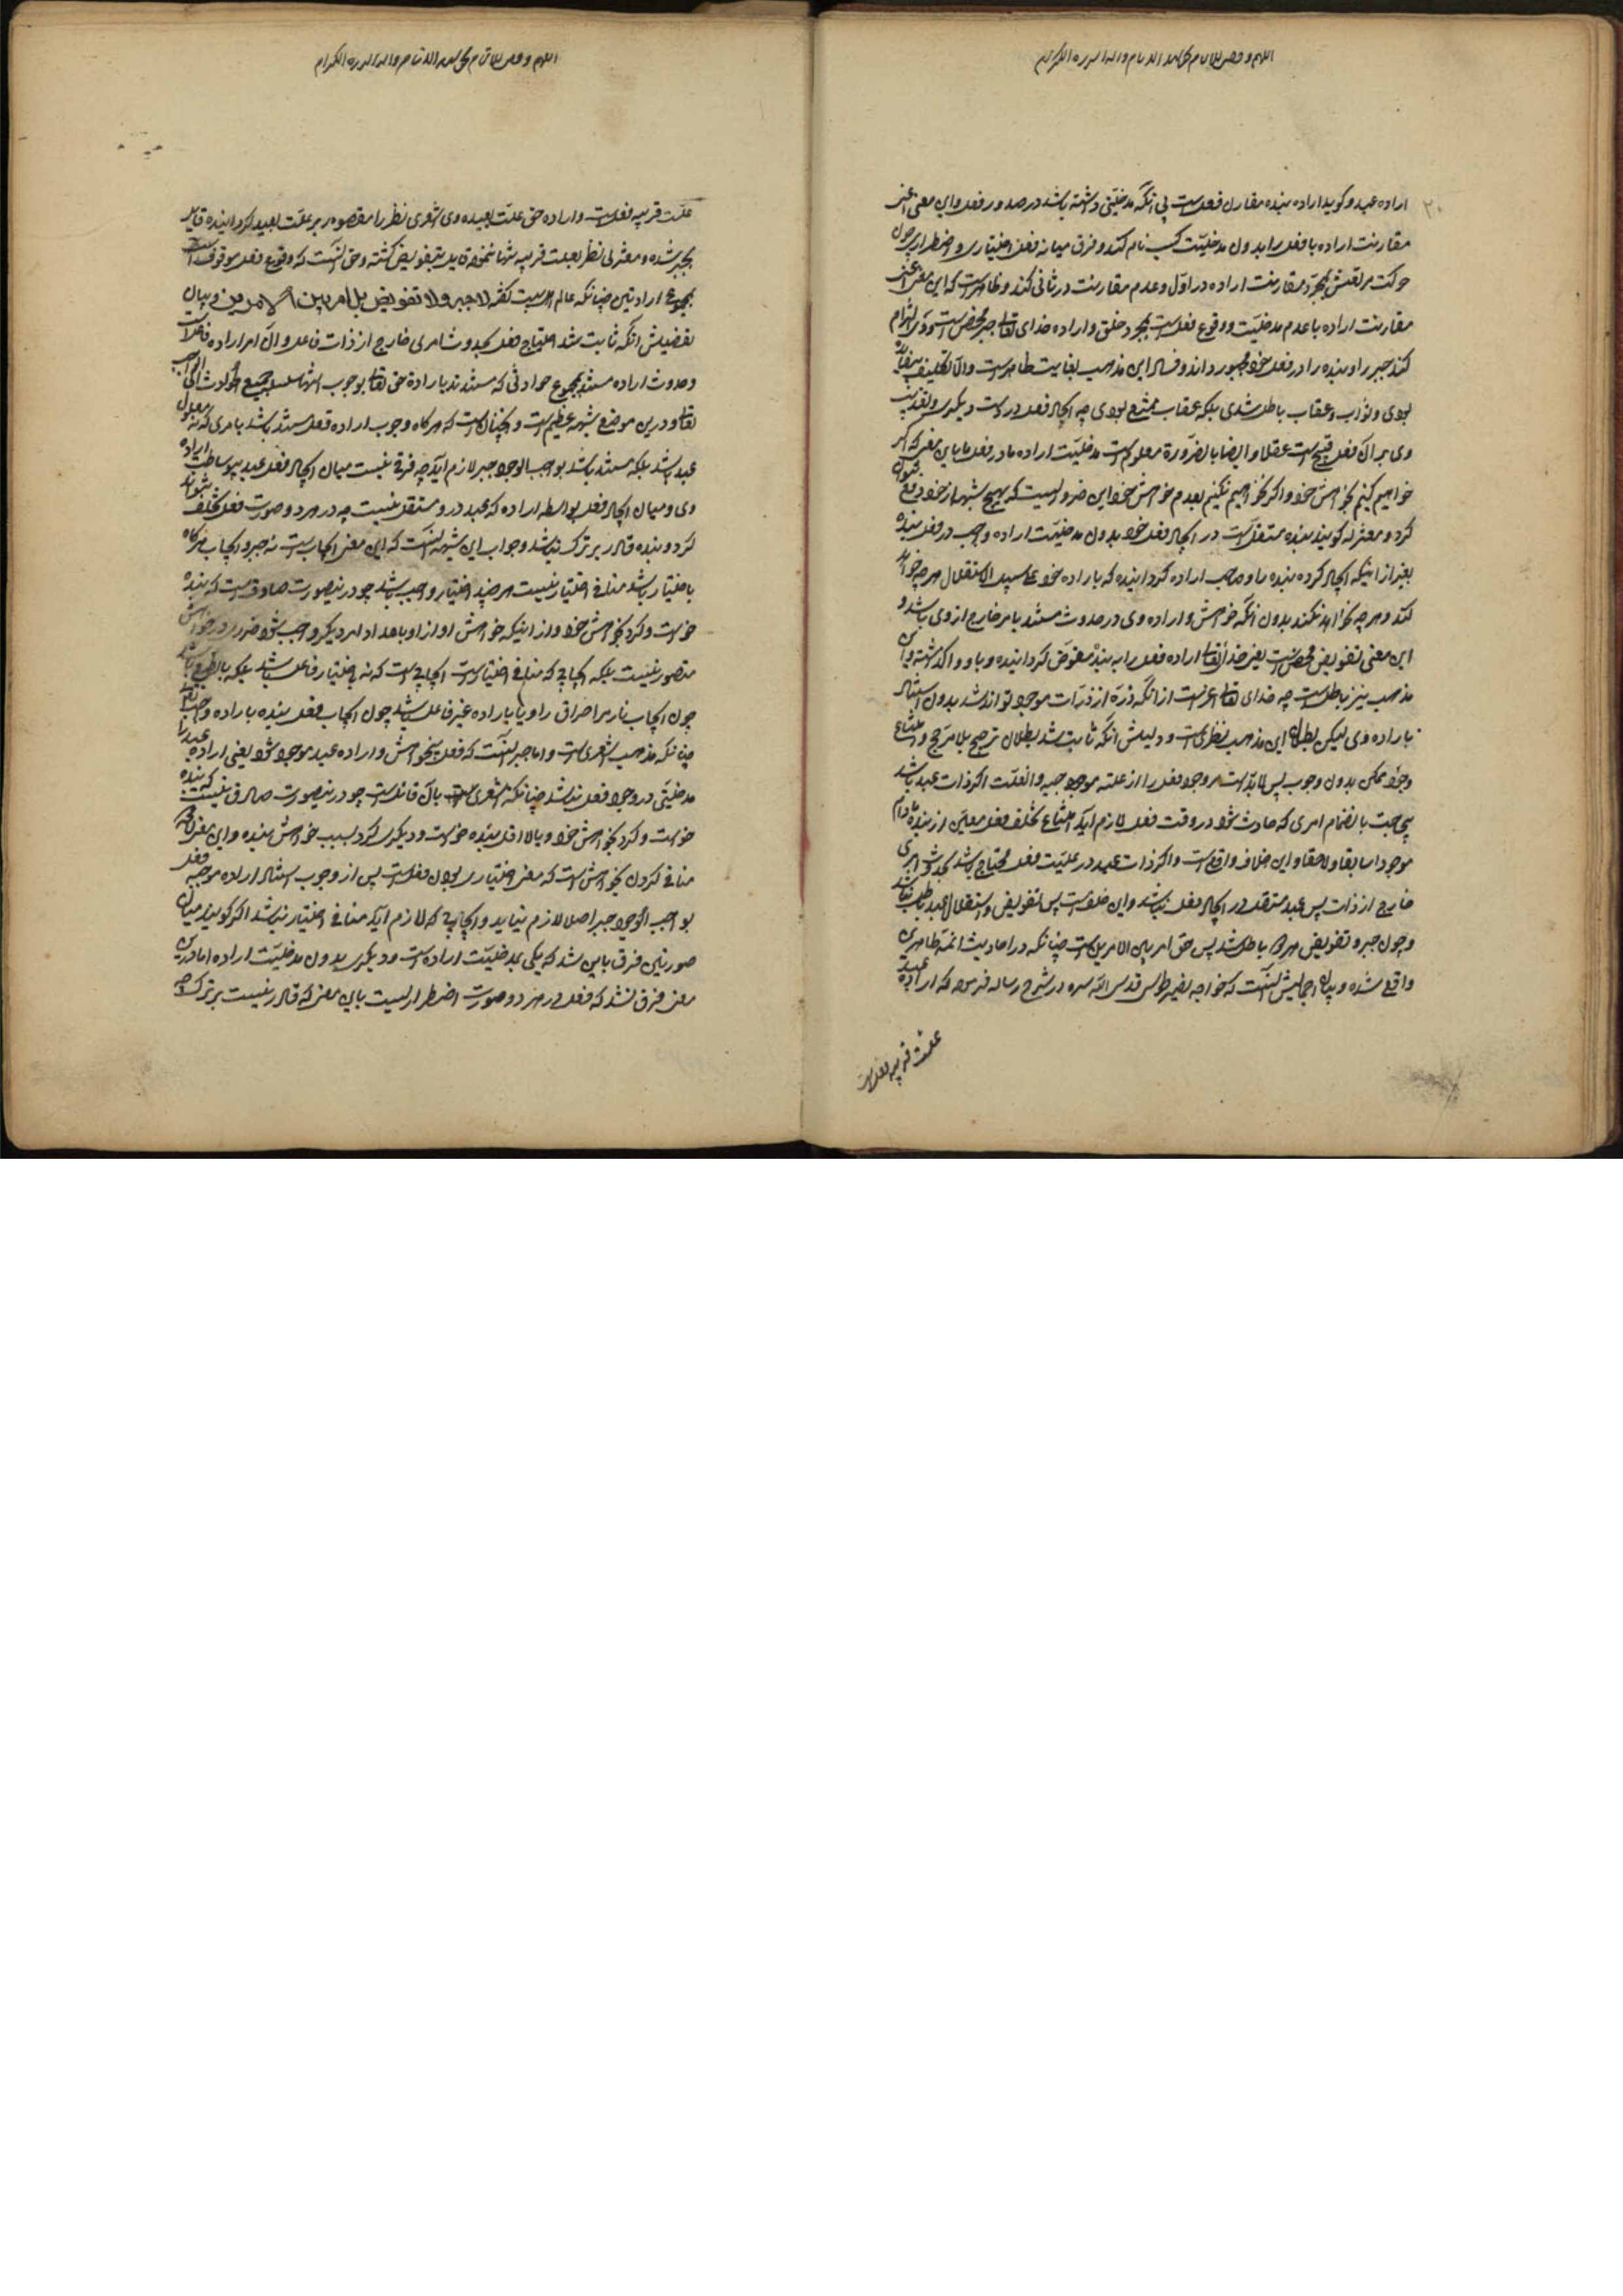 ۲۰
اراده عبد و کوید اراده بنده مقارن فعلست بی آنکه مدخلیتی داشته باشد در صدور فعل و این معنی اعنی
مقارنت اراده با فعل را بدون مدخلیّت کسب نام کند و فرق میانه فعل اختیاری و اضطراری چون
حرکت مرتعش بمجرّد مقارنت اراده در اوّل و عدم مقارنت در ثانی کند و ظاهرست که این معنی اعنی
مقارنت اراده با عدم مدخلیّت و وقوع فعلست بمجرد خلق و اراده خدای تعالی جبر محض است
کند جبر را و بنده را در فعل خود مجبور داند و فساد این مذهب بغایت ظاهرست والّا تکلیف بیفایده
بودی و ثواب و عقاب باطل شدی بلکه عقاب ممتنع بودی چه ایجاد فعل در دست دیگری و تعذیب
وی بر آن فعل قبیح است عقلا و ایضا بالضرورة معلومست مدخلیّت اراده ما در فعل ما باین معنی که اگر
خواهیم کنیم بخواهش خود و اگر نخواهیم نکنیم بعدم خواهش خود این ضروریست که بهیچ شبهه از خود دفع نتوان
کرد و معتزله کویند بنده مستقلست در ایجاد فعل خود بدون مدخلیّت اراده واجب در فعل بنده
بغیر از اینکه ایجاد کرده بنده را و صاحب اراده کردانیده که باراده خود علی سبیل الاستقلال هر چه خواهد
کند و هر چه نخواهد نکند بدون آنکه خواهش و اراده وی در حدوث مستند بامر خارج از وی باشد و
این معنی تفویض محض است یعنی خدا تعالی اراده فعل را به بنده مفوّض کردانیده و باو واگذاشته و این
مذهب نیز باطلست چه خدای تعالی اعز است از آنکه ذرّه از ذرّات موجود تواند شد بدون استناد
باراده وی لیکن بطلان این مذهب نظریست و دلیلش آنکه ثابت شد بطلان ترجیح بلا مرجّح و امتناع
وجود ممکن بدون وجوب پس لابدّست وجود فعل را از علته موجبه و آنعلّت اگر ذات عبد باشد
بیحاجت بانضمام امری که حادث شود در وقت فعل لازم آید امتناع تخلّف فعل معیّن از بنده مادام
موجودا سابقا و لاحقا و این خلاف واقعست و اگر ذات عبد در علیّت فعل محتاج باشد بحدوث امری
خارج از ذات پس عبد مستقل در ایجاد فعل نباشد و این خلفست پس تفویض و استقلال عبد باطل باشد
و چون جبر و تفویض هر دو باطل شد پس حق امر بین الامرین است چنانکه در احادیث ائمّه طاهرین
واقع شده و بیان اجمالیش آنست که خواجه نصیر طوسی قدس الله سره در شرح رساله فرموده که اراده عبد
علت قریبه فعلست
علّت قریبه فعلست و اراده حق علّت بعیده وی اشعری نظر را مقصور بر علّت بعید کردانیده قایل
بجبر شده و معتزلی نظر بعلّت قریبه تنها نموده قایل بتفویض کشته و حق آنست که وقوع فعل موقوفست
بمجموع ارادتین چنانکه عالم اهل بیت گفته لا جبر و لا تفویض بل امر بین الامرین و بیان
تفصیلش آنکه ثابت شد احتیاج فعل بحدوث امری خارج از ذات فاعل و آن امر اراده فاعلست
و حدوث اراده مستند بمجموع حوادثی که مستندند باراده حق تعالی بوجوب انتهاء سلسله جمیع حوادث الی الواجب
تعالی و درین موضع شبهه عظیم است و آنچنانست که هرکاه وجوب اراده فعل مستند باشد بامری که نه معلول
عبد باشد بلکه مستند باشد بواجب الوجود جبر لازم آید چه فرقی نیست میان ایجاد فعل عبد بیوساطت اراده
وی و میان ایجاد فعل بواسطه اراده که عبد در او مستقل نیست چه در هر دو صورت فعل تخلّف نتواند
کرد و بنده قادر بر ترک نباشد و جواب این شبهه آنست که این معنی ایجاب است نه جبر و ایجاب هرکاه
باختیار باشد منافی اختیار نیست هر چند اختیار واجب باشد چو درینصورت صادقست که بنده
خواست و کرد بخواهش خود و از اینکه خواهش او از او باعداد امر دیگر واجب شود ضرر در خواهش
متصوّر نیست بلکه ایجابی که منافی اختیارست ایجابی است که نه باختیار فاعل باشد بلکه بالطبع باشد
چون ایجاب نار مر احراق را و یا باراده غیر فاعل باشد چون ایجاب فعل بنده باراده واجب تعالی
چنانکه مذهب اشعریست و اما جبر آنست که فعل بیخواهش و اراده عبد موجود شود یعنی اراده عبد را
مدخلیّتی در وجود فعل نباشد چنانکه اشعری بآن قائلست چو درینصورت صادق نیست که بنده
خواست و کرد بخواهش خود و بالا اقل بنده خواست و دیگری کرد بسبب خواهش بنده و این معنی
منافی کردن بخواهش است که معنی اختیاری بودن فعلست پس از وجوب استناد اراده موجبه فعل
بواجب الوجود جبر اصلا لازم نیاید و ایجابی که لازم آید منافی اختیار نباشد اگر کویند میان
صورتین فرق باین شد که یکی بمدخلیّت اراده است و دیگری بدون مدخلیّت اراده اما درین
معنی فرق نشد که فعل در هر دو صورت اضطراریست باین معنی که قادر نیست بر ترک چه